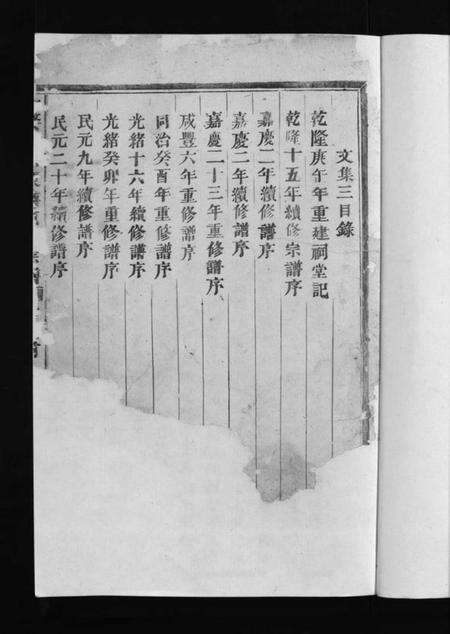 文集三目錄
乾隆庚午年重建祠堂記
乾隆十五年續修宗譜序
嘉慶二年續修譜序
嘉慶二年續修譜序
嘉慶二十三年重修譜序
咸豐六年重修譜序
同治癸酉年重修譜序
光緒十六年續修譜序
光緒癸卯年重修譜序
民元九年續修譜序
民元二十年續修譜序